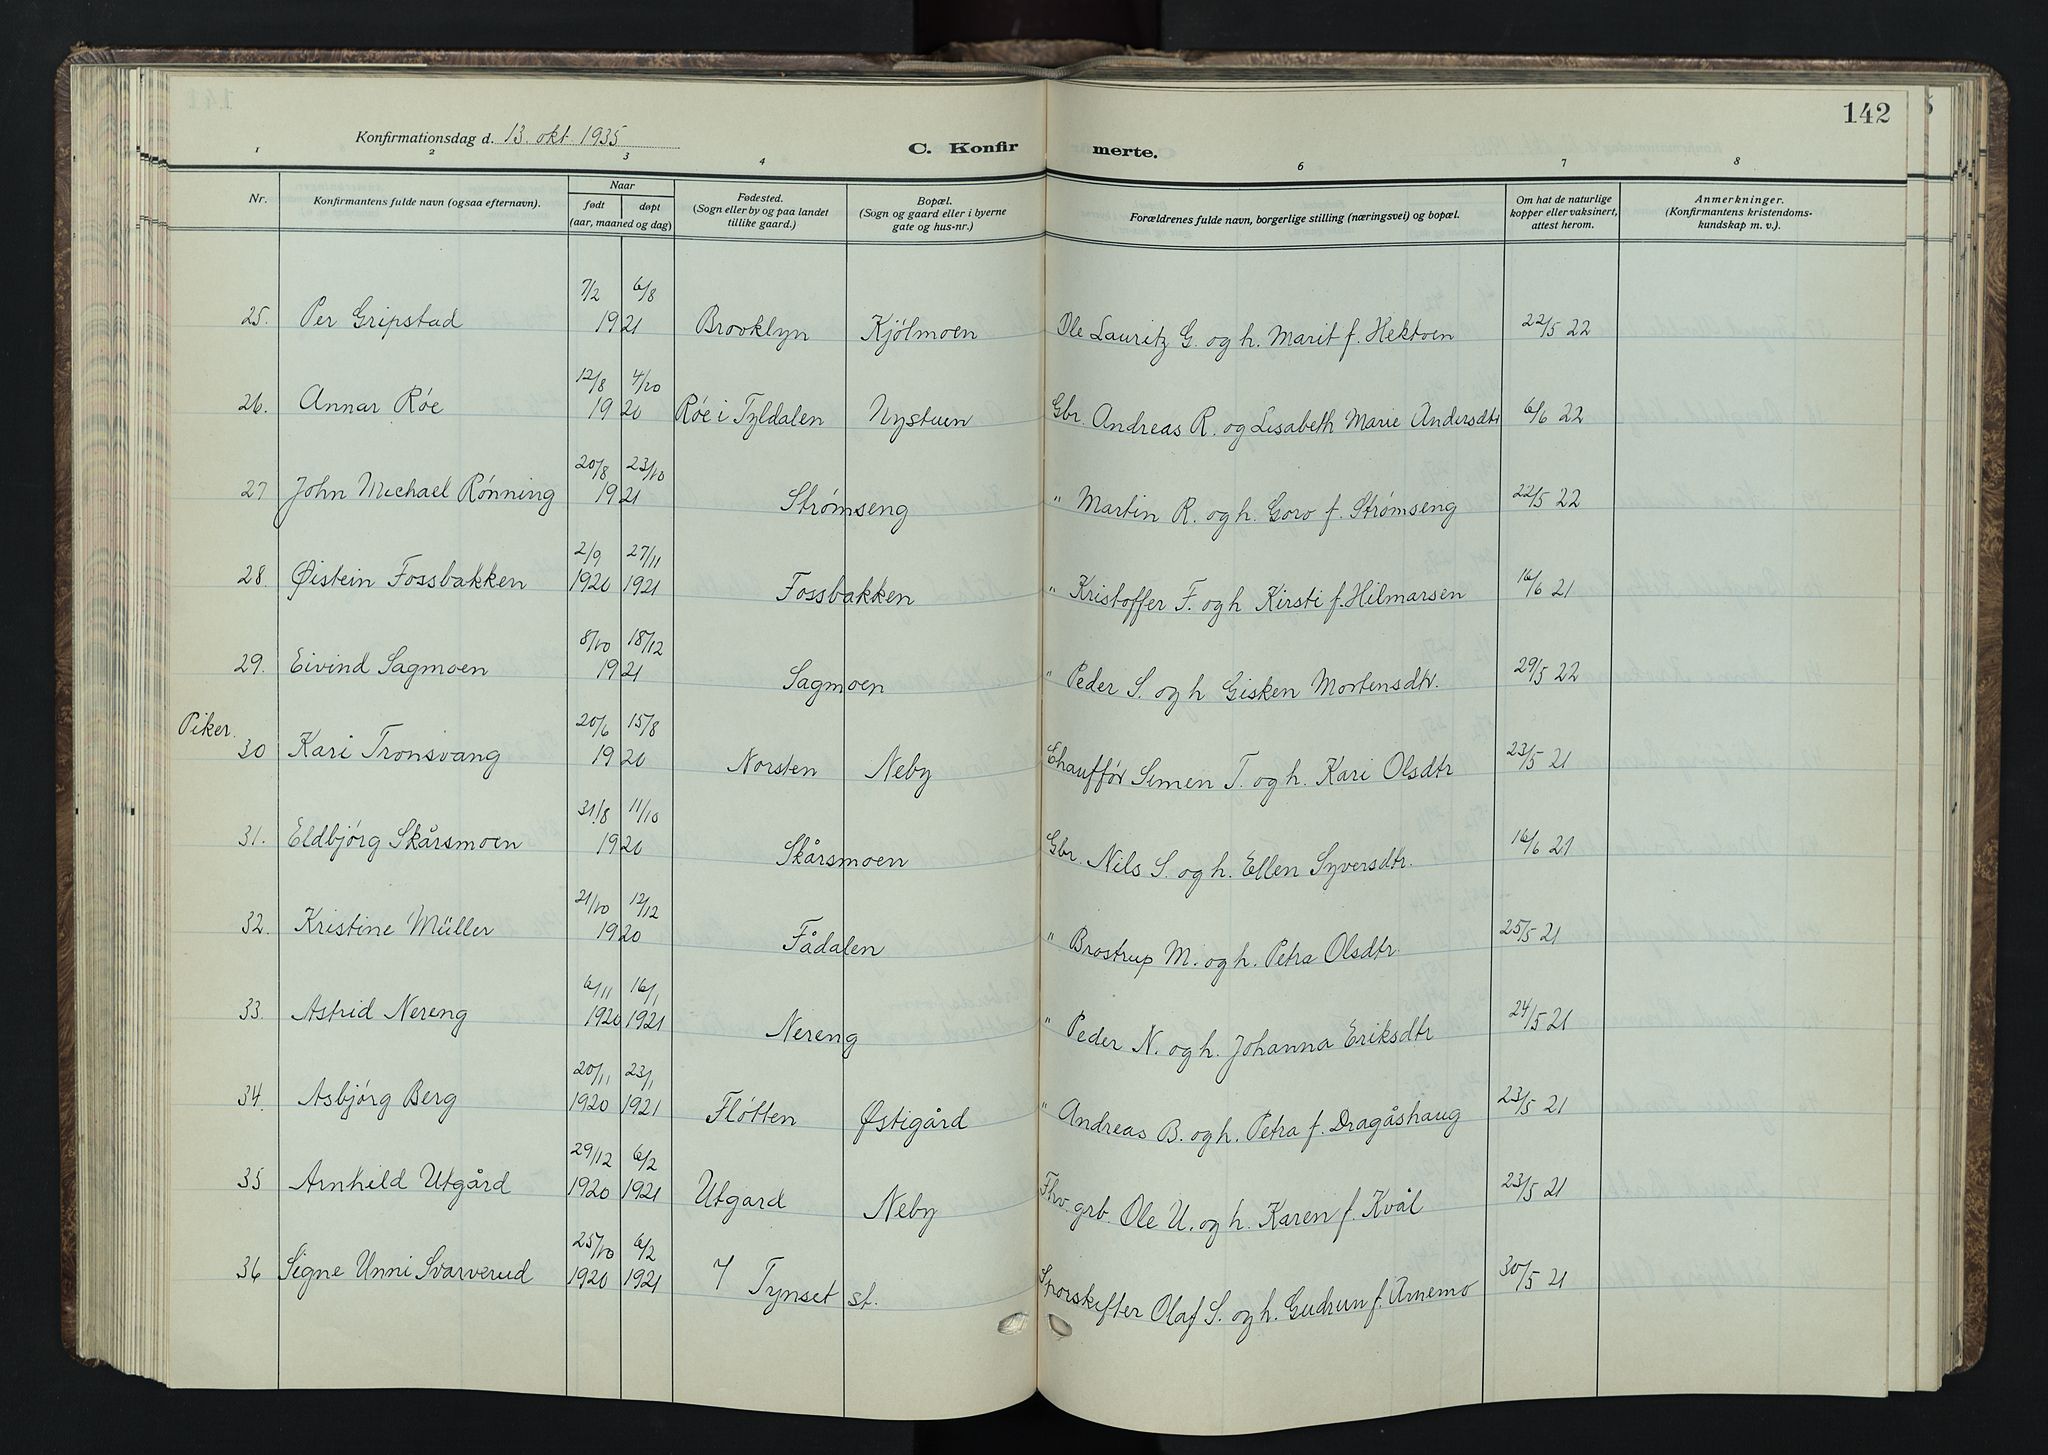 142
Konfirmationsdag d. 13. okt. 1935
C. Konfirmerte.
1 2 3 4 6 7 8
Nr.
Konfirmantens fulde navn (ogsaa efternavn).
Naar
født døpt
(aar, maaned og dag)
Fødested.
(Sogn eller by og paa landet
tillike gaard.)
Bopæl.
(Sogn og gaard eller i byerne
gate og hus-nr.)
Forældrenes fulde navn, borgerlige stilling (næringsvei) og bopæl.
Om hat de naturlige
kopper eller vaksinert,
attest herom.
Anmerkninger.
(Konfirmantens kristendoms-
kundskap m. v.).
7/2 6/8
25. Per Gripstad 1921 Brooklyn Kjölmoen Ole Lauritz G. og h. Marit f. Hektoen 22/5 22
12/8 4/10
26. Annar Róe 1920 Róe i Tyldalen Nystuen Gbr. Andreas R. og Lisabeth Marie Andersdtr 6/6 22
20/8 23/10
27 John Michael Rónning 1921 Strømseng " Martin R. og h. Goro f. Strømseng 22/5 22
2/9 27/11
28. Øistein Fossbakken 1920 1921 Fossbakken " Kristoffer F. og h Kirsti f. Hilmarsen 16/6 21
8/10 18/12
29. Eivind Sagmoen 1921 Sagmoen " Peder S. og h Gisken Mortensdtr. 29/5 22
Piker. 20/6 15/8
30 Kari Tronsvang 1920 Norsten Neby Chauffór Simen T. og h. Kari Olsdtr 23/5 21
31/8 11/10
31. Eldbjórg Skårsmoen 1920 Skårsmoen Gbr. Nils S. og h. Ellen Syversdtr. 16/6 21
21/10 12/12
32. Kristine Müller 1920 Fådalen " Brostrup M. og h. Petra Olsdtr. 25/5 21
6/11 16/1
33. Astrid Nereng 1920 1921 Nereng " Peder N. og h. Johanna Eriksdtr 24/5 21
20/11 23/1
34. Asbjórg Berg 1920 1921 Flótten Østigård " Andreas B. og h. Petra f. Dragåshaug 23/5 21
29/12 6/2
35 Arnhild Utgård 1920 1921 Utgard Neby Fhv. grb. Ole U. og h. Karen f. Kvål 23/5 21
25/10 6/2
36 Signe Unni Svarverud 1920 1921 Tynset st. Sporskifter Olaf S. og h. Gudrun f. Arnemo 30/5 21